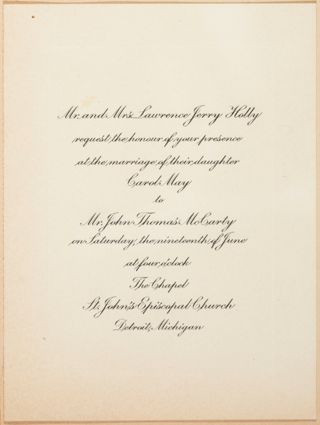 Mr. and Mrs. Lawrence Jerry Holly
request the honour of your presence
at the marriage of their daughter
Carol May
to
Mr. John Thomas McCarty
on Saturday, the nineteenth of June
at four o'clock
The Chapel
St. John's Episcopal Church
Detroit, Michigan